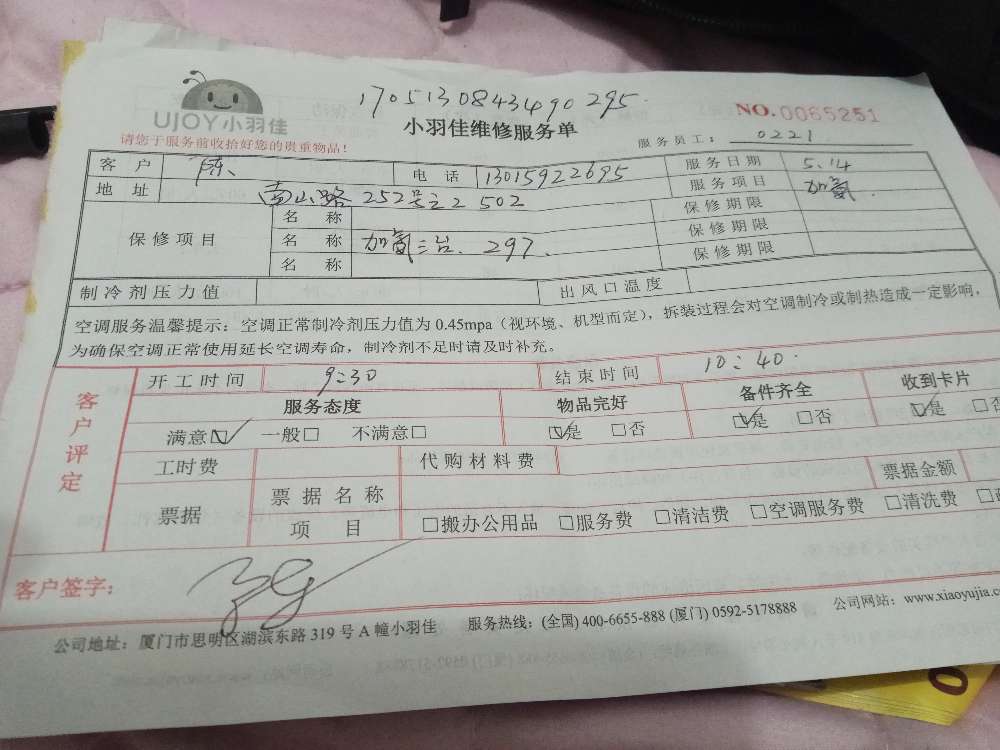 1705130843490295.
UJOY小羽佳
小羽佳维修服务单
NO.0065251
请您于服务前收拾好您的贵重物品！
服务员工： 0221
客 户 陈、 电 话 13015922695 服务日期 5.14
地 址 南山路252号之2 502 服务项目 加氟.
保修项目
名 称 保修期限
名 称 加氟三台. 297. 保修期限
名 称 保修期限
制冷剂压力值 出风口温度
空调服务温馨提示：空调正常制冷剂压力值为 0.45mpa（视环境、机型而定），拆装过程会对空调制冷或制热造成一定影响，
为确保空调正常使用延长空调寿命，制冷剂不足时请及时补充。
客户评定
开工时间 9:30 结束时间 10:40.
服务态度 物品完好 备件齐全 收到卡片
满意☑ 一般□ 不满意□ ☑是 □否 ☑是 □否 ☑是 □否
工时费 代购材料费
票据 票据名称 票据金额
项 目 □搬办公用品 □服务费 □清洁费 □空调服务费 □清洗费
客户签字：
公司地址：厦门市思明区湖滨东路 319 号 A 幢小羽佳 服务热线：(全国) 400-6655-888 (厦门) 0592-5178888 公司网站：www.xiaoyujia.co